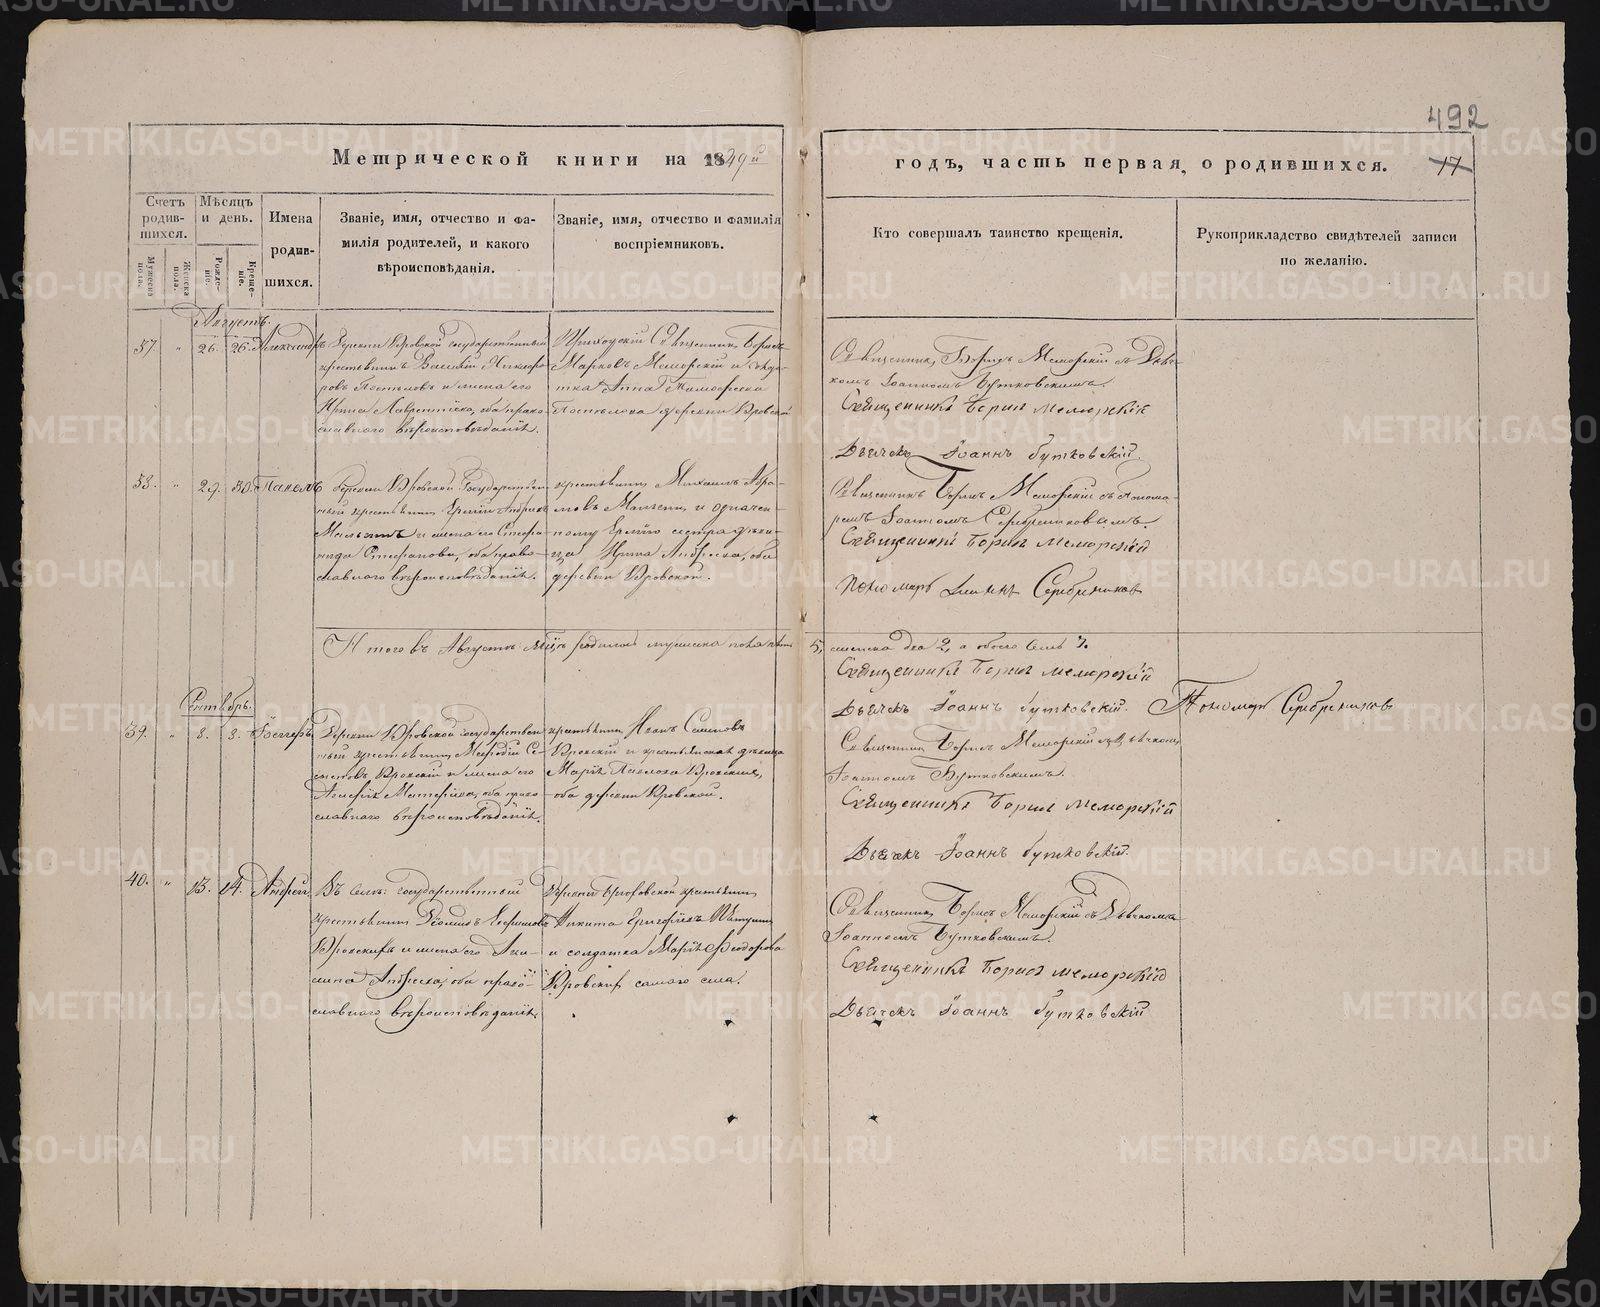 492
Метрической книги на 1849й годъ, часть первая, о родившихся. 17
Счетъ родив-шихся.
Мужеска пола.
Женска пола.
Мѣсяцъ и день.
Рожде-ніе.
Креще-ніе.
Имена родив-шихся.
Званіе, имя, отчество и фа-
милія родителей, и какого
вѣроисповѣданія.
Званіе, имя, отчество и фамилія
воспріемниковъ.
Кто совершалъ таинство крещенія.
Рукоприкладство свидѣтелей записи
по желанію.
Августъ.
37. " 26. 26. Александръ
Деревни Юровской государственный
крестьянинъ Василій Никифо-
ровъ и жена его
Ирина Лаврентіева, оба право-
славнаго вѣроисповѣданія.
Приходскій Священникъ Борисъ
Марковъ Меморскій и солда-
тка Анна Тимофеева
деревни Юровской
Священникъ Борисъ Меморскій съ Дьяч-
комъ Іоанномъ Бутковскимъ.
Священникъ Борисъ Меморскій
Дьячекъ Іоаннъ Бутковскій.
38. " 29. 30. Павелъ
деревни Юровской Государствен-
ный крестьянинъ Андреевъ
и жена его Стефа-
нида Стефанова, оба право-
славнаго вѣроисповѣданія.
крестьянинъ Михаилъ Абра-
мовъ и означен-
ному сестра дѣви-
ца Ирина Андреева, оба
деревни Юровской.
Священникъ Борисъ Меморскій съ Понома-
ремъ Іоанномъ Серебрениковымъ.
Священникъ Борисъ Меморскій
Пономарь Іоаннъ Серебрениковъ
Итого въ Августѣ мѣсяцѣ родилось мужеска пола пять 5, женска два 2, а обоего семь 7.
Священникъ Борисъ Меморскій
Дьячекъ Іоаннъ Бутковскій. Пономарь Серебрениковъ
Сентябрь.
39. " 8. 8.
Деревни Юровской государствен-
ный крестьянинъ
Юровскій и жена его
Матфеева, оба право-
славнаго вѣроисповѣданія.
крестьянинъ Иванъ
Юровскій и крестьянская дѣвица
Марія Павлова Юровскія,
оба деревни Юровской.
Священникъ Борисъ Меморскій съ Дьячкомъ
Іоанномъ Бутковскимъ.
Священникъ Борисъ Меморскій
Дьячекъ Іоаннъ Бутковскій.
40. " 13. 14. Андрей
Въ селѣ: государственный
крестьянинъ
Юровскихъ и жена его Аки-
лина Андреева, оба право-
славнаго вѣроисповѣданія.
Деревни крестьянинъ
Никита Григорьевъ
и солдатка Марія Феодорова
Юровскихъ самаго села.
Священникъ Борисъ Меморскій съ Дьячкомъ
Іоанномъ Бутковскимъ.
Священникъ Борисъ Меморскій
Дьячекъ Іоаннъ Бутковскій
METRIKI.GASO-URAL.RU